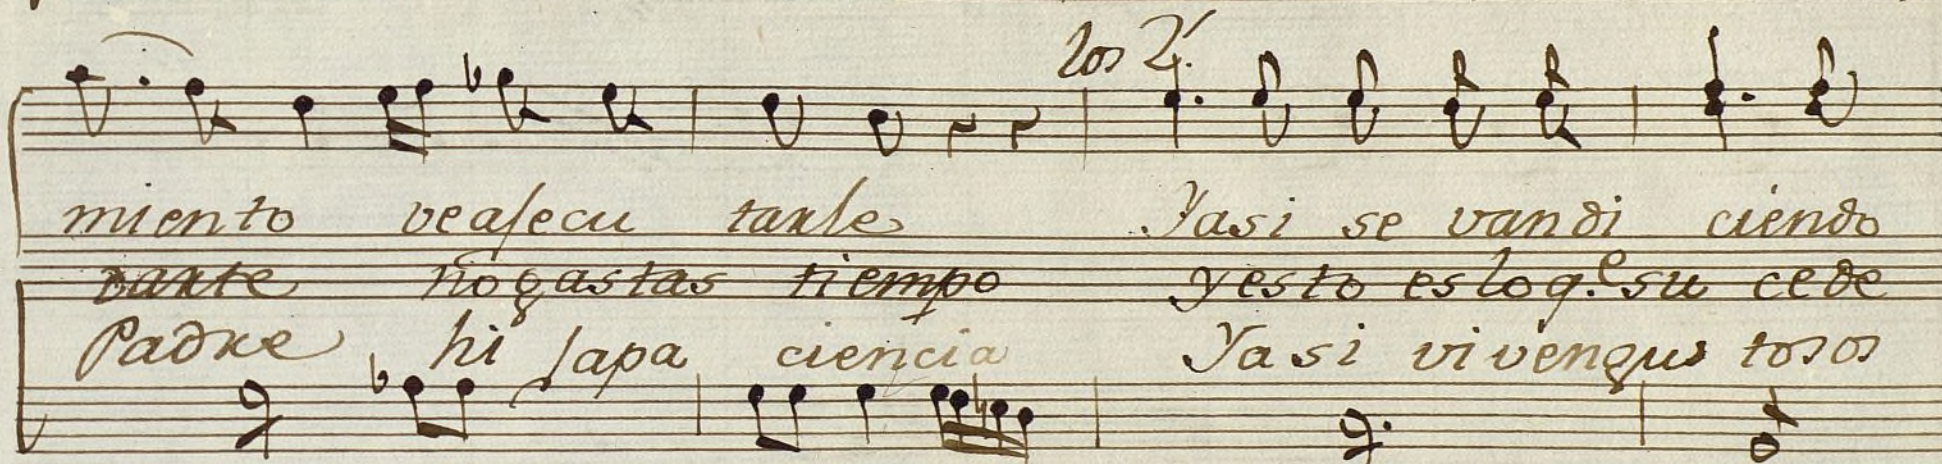 los 2.
miento veasecu tarle Yasi se vandi ciendo
tante no gastas tiempo yesto es loq.e su cede
Padre hi sapa ciencia Yasi vivengus tosos